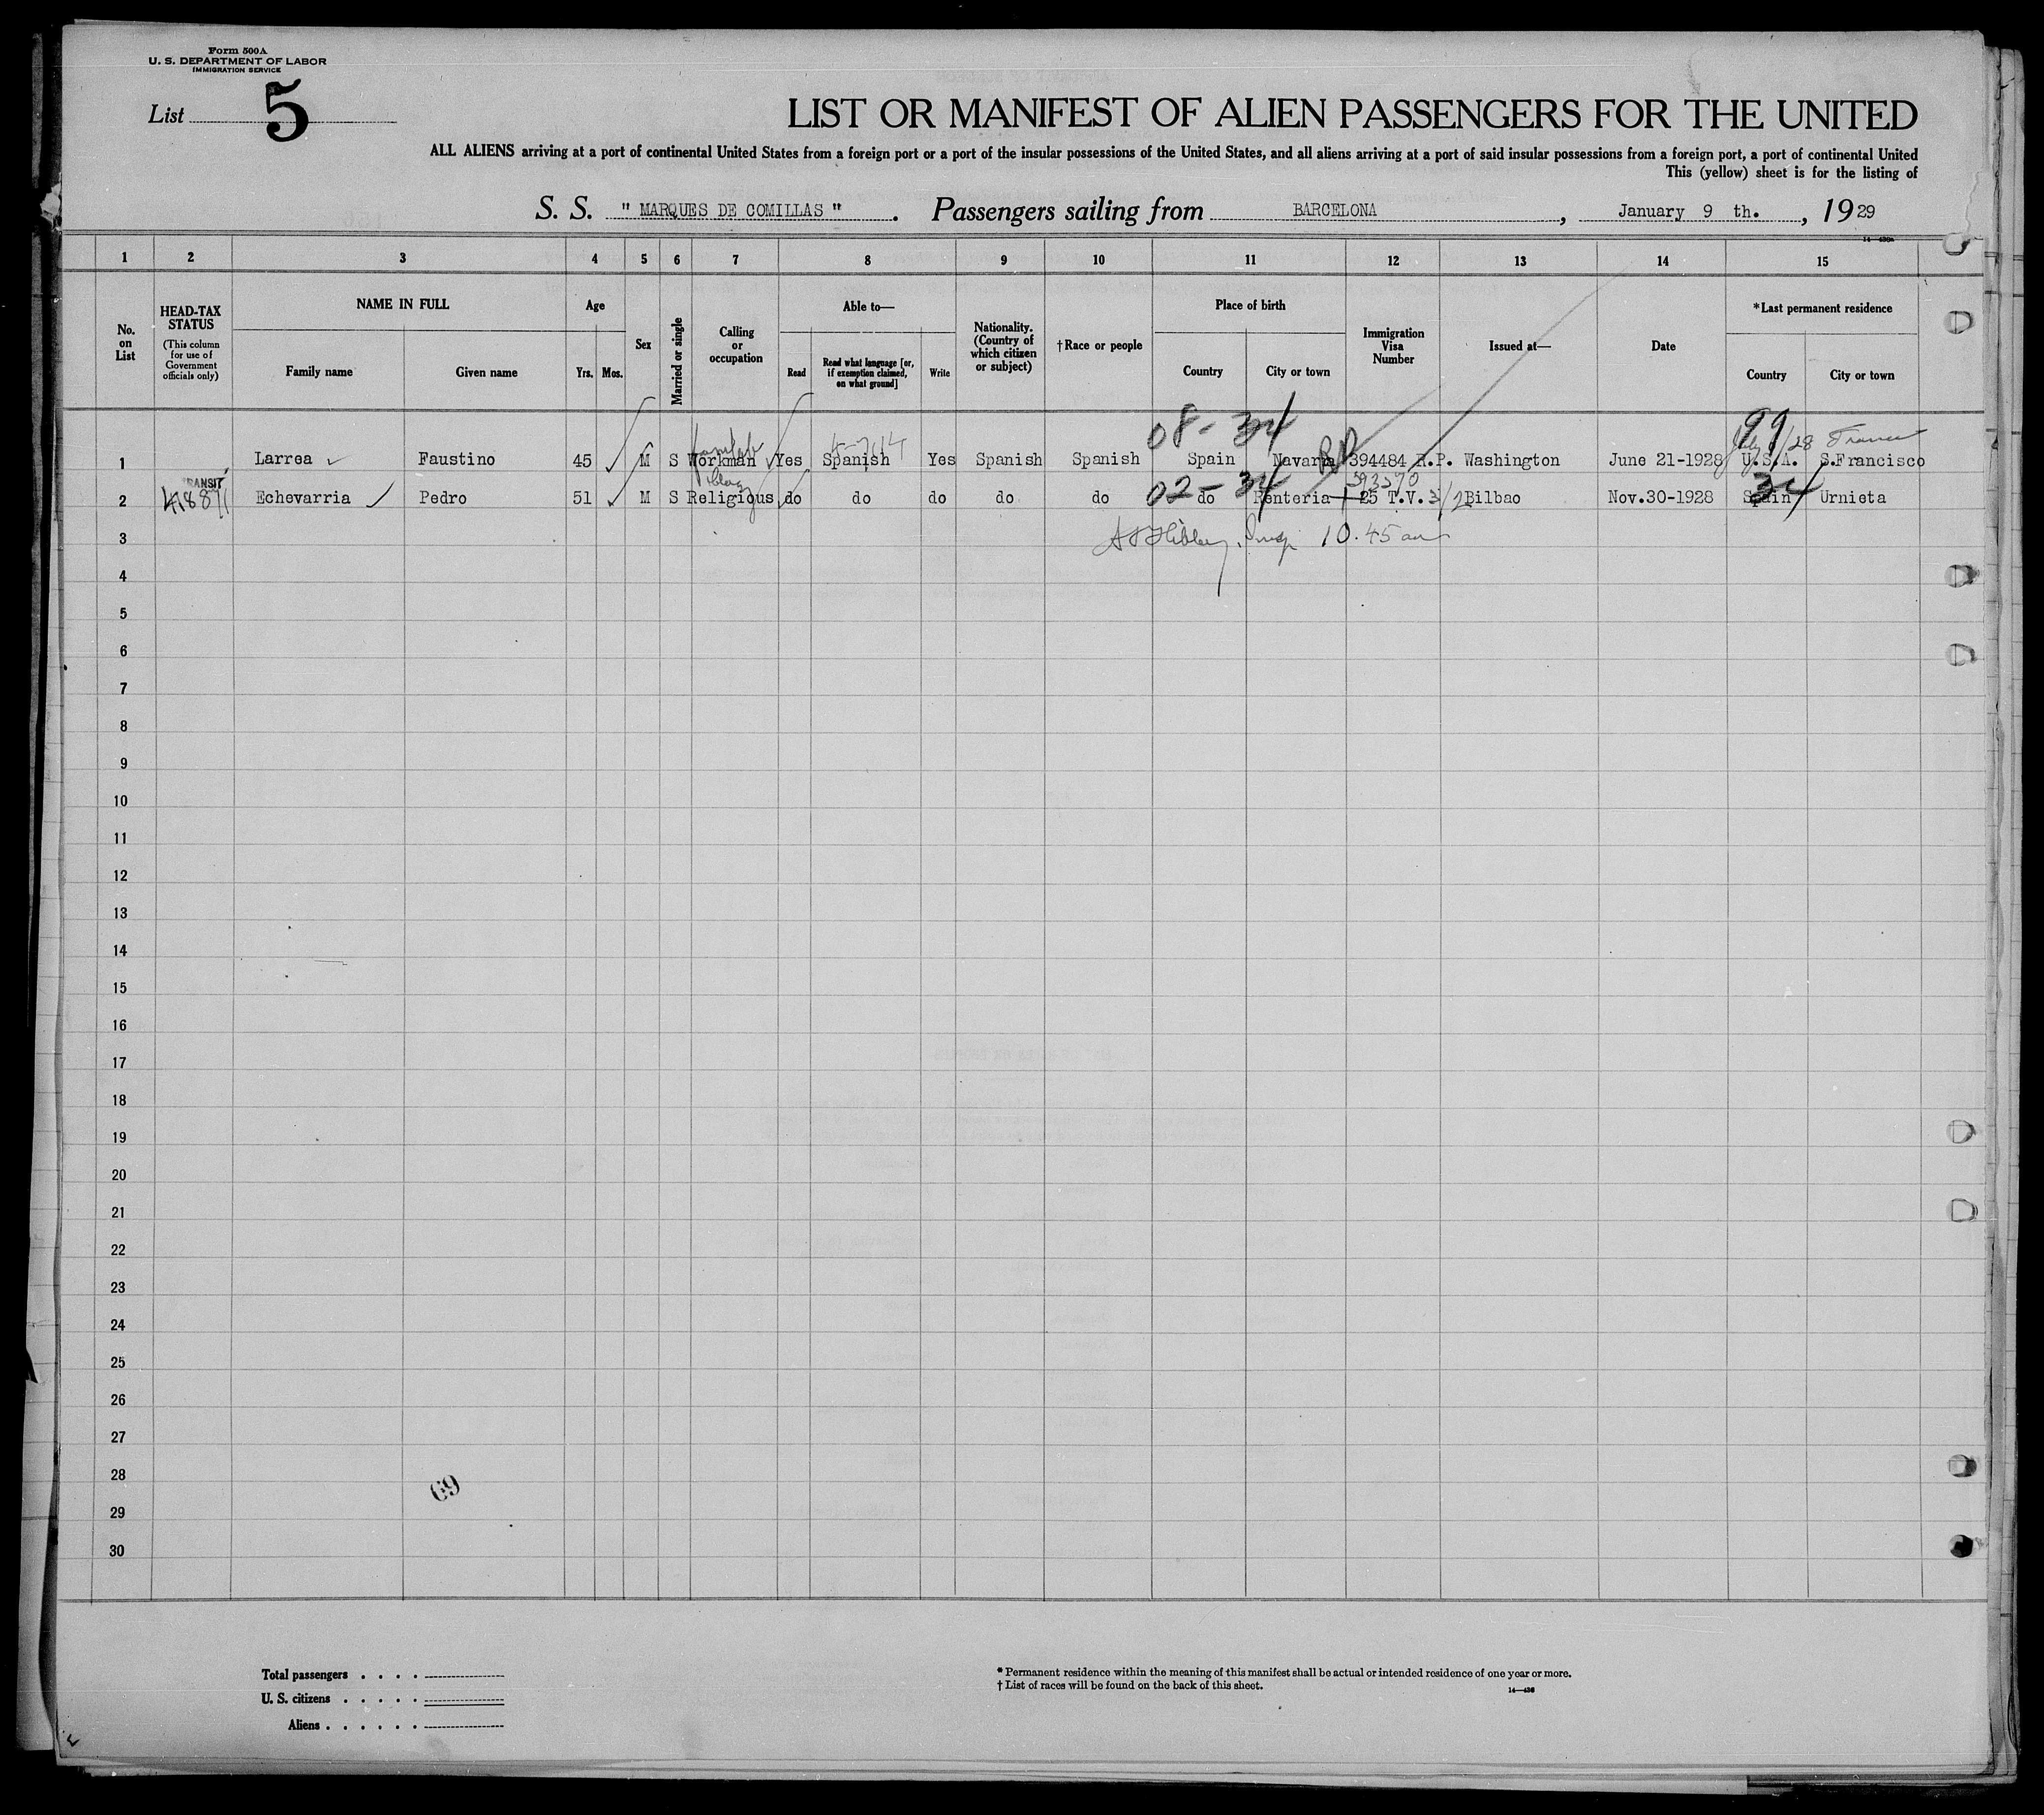 Form 500A
U. S. DEPARTMENT OF LABOR
IMMIGRATION SERVICE
List 5
LIST OR MANIFEST OF ALIEN PASSENGERS FOR THE UNITED
ALL ALIENS arriving at a port of continental United States from a foreign port or a port of the insular possessions of the United States, and all aliens arriving at a port of said insular possessions from a foreign port, a port of continental United
This (yellow) sheet is for the listing of
S. S. " MARQUES DE COMILLAS " . Passengers sailing from BARCELONA , January 9 th. , 1929
1 2 3 4 5 6 7 8 9 10 11 12 13 14 15
No. on List
HEAD-TAX STATUS
(This column for use of Government officials only)
NAME IN FULL
Family name
Given name
Age
Yrs. Mos.
Sex
Married or single
Calling or occupation
Able to—
Read
Read what language [or, if exemption claimed, on what ground]
Write
Nationality. (Country of which citizen or subject)
†Race or people
Place of birth
Country
City or town
Immigration Visa Number
Issued at—
Date
*Last permanent residence
Country
City or town
08-34
99
1 Larrea Faustino 45 M S Workman Yes Spanish Yes Spanish Spanish Spain Navarra 394484 R.P. Washington June 21-1928 U.S.A. S.Francisco
TRANSIT
2 Echevarria Pedro 51 M S Religious do do do do do 02-34 do Renteria 25 T.V. Bilbao Nov.30-1928 Spain 34 Urnieta
3 10.45 am
4
5
6
7
8
9
10
11
12
13
14
15
16
17
18
19
20
21
22
23
24
25
26
27
28
29
30
69
Total passengers . . . .
U. S. citizens . . . . .
Aliens . . . . . .
* Permanent residence within the meaning of this manifest shall be actual or intended residence of one year or more.
† List of races will be found on the back of this sheet.